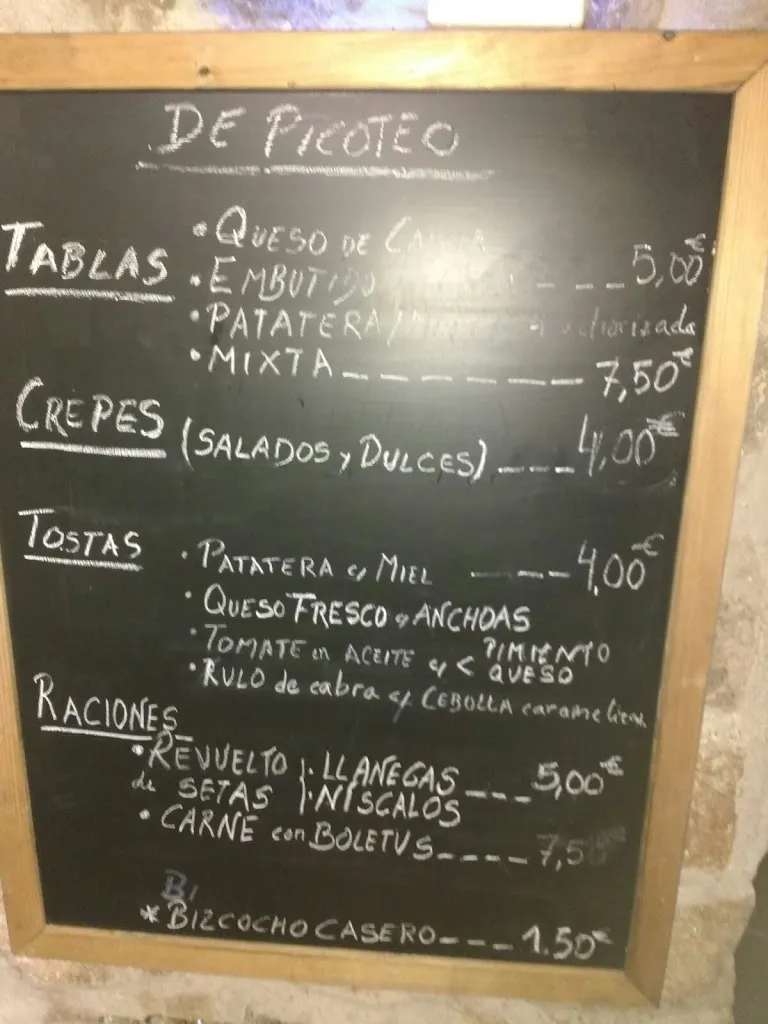 DE PICOTEO
TABLAS
• QUESO DE
• EMBUTIDO _ _ _ 5,00€
• PATATERA/
• MIXTA _ _ _ _ _ _ _ 7,50€
CREPES (SALADOS y DULCES) _ _ _ 4,00€
TOSTAS
• PATATERA c/ MIEL _ _ _ _ 4,00€
• QUESO FRESCO y ANCHOAS
• TOMATE en ACEITE y < PIMIENTO
QUESO
• RULO de cabra c/ CEBOLLA
RACIONES
• REVUELTO de SETAS } • LLANEGAS _ _ _ 5,00€
• NISCALOS
• CARNE con BOLETUS _ _ _ _ 7,5
Bi
* BIZCOCHO CASERO _ _ _ 1.50€